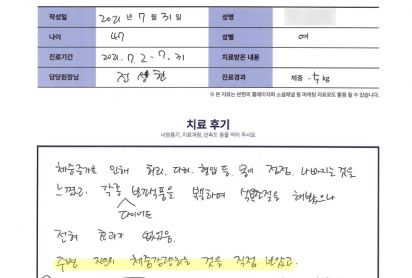 작성일 2021년 7월 31일 성명
나이 47 성별 여
진료기간 2021. 7. 2 - 7. 31 치료받은 내용
담당원장님 전성현 진료경과 체중 -5kg
※ 본 자료는 본원의 홈페이지와 소셜채널 등 마케팅 자료로도 활용 될 수 있습니다.
치료 후기
내원동기, 치료과정, 만족도 등을 적어 주세요
체중증가로 인해 허리, 다리, 혈압 등, 몸이 점점, 나빠지는 것을
느꼈고, 각종 보조식품을 복용하며 식이조절을 해봤으나
다이어트
전혀 효과가 없었음.
주변 지인의 체중감량하는 것을 직접 보았고